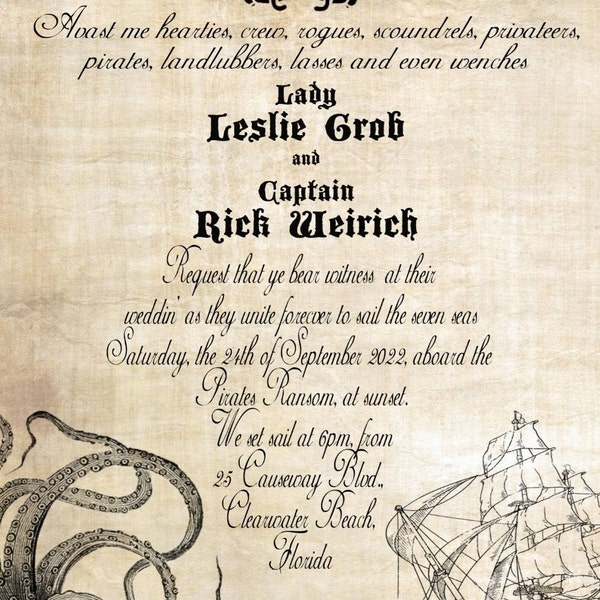 Avast me hearties, crew, rogues, scoundrels, privateers,
pirates, landlubbers, lasses and even wenches
Lady
Leslie Grob
and
Captain
Rick Weirich
Request that ye bear witness at their
weddin' as they unite forever to sail the seven seas
Saturday, the 24th of September 2022, aboard the
Pirates Ransom, at sunset.
We set sail at 6pm, from
25 Causeway Blvd.,
Clearwater Beach,
Florida